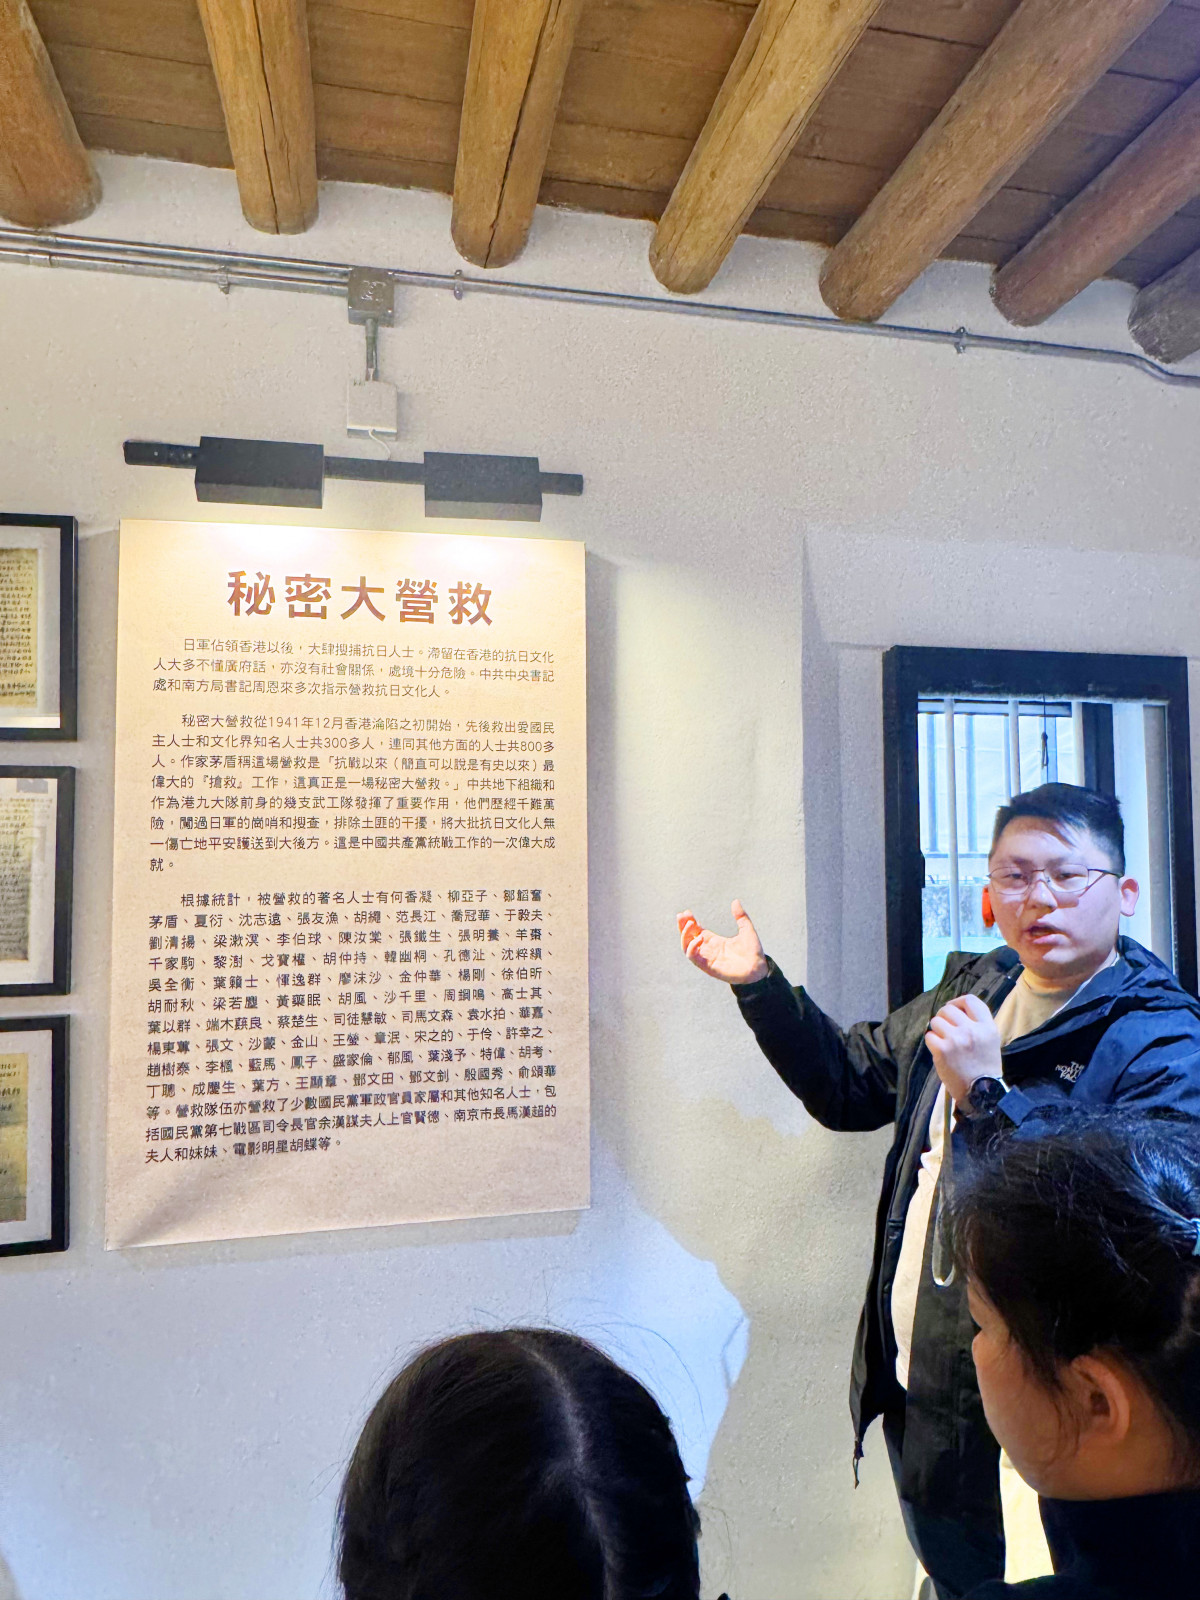 秘密大營救
日軍佔領香港以後，大肆搜捕抗日人士。滯留在香港的抗日文化
人大多不懂廣府話，亦沒有社會關係，處境十分危險。中共中央書記
處和南方局書記周恩來多次指示營救抗日文化人。
秘密大營救從1941年12月香港淪陷之初開始，先後救出愛國民
主人士和文化界知名人士共300多人，連同其他方面的人士共800多
人。作家茅盾稱這場營救是「抗戰以來（簡直可以說是有史以來）最
偉大的『搶救』工作，這真正是一場秘密大營救。」中共地下組織和
作為港九大隊前身的幾支武工隊發揮了重要作用，他們歷經千難萬
險，闖過日軍的崗哨和搜查，排除土匪的干擾，將大批抗日文化人無
一傷亡地平安護送到大後方。這是中國共產黨統戰工作的一次偉大成
就。
根據統計，被營救的著名人士有何香凝、柳亞子、鄒韜奮、
茅盾、夏衍、沈志遠、張友漁、胡繩、范長江、喬冠華、于毅夫、
劉清揚、梁漱溟、李伯球、陳汝棠、張鐵生、張明養、羊棗、
千家駒、黎澍、戈寶權、胡仲持、韓幽桐、孔德沚、沈粹縝、
吳全衡、葉籟士、惲逸群、廖沫沙、金仲華、楊剛、徐伯昕、
胡耐秋、梁若塵、黃藥眠、胡風、沙千里、周鋼鳴、高士其、
葉以群、端木蕻良、蔡楚生、司徒慧敏、司馬文森、袁水拍、華嘉、
楊東蓴、張文、沙蒙、金山、王瑩、章泯、宋之的、于伶、許幸之、
趙樹泰、李楓、藍馬、鳳子、盛家倫、郁風、葉淺予、特偉、胡考、
丁聰、成慶生、葉方、王顯章、鄧文田、鄧文釗、殷國秀、俞頌華
等。營救隊伍亦營救了少數國民黨軍政官員家屬和其他知名人士，包
括國民黨第七戰區司令長官余漢謀夫人上官賢德、南京市長馬漢超的
夫人和妹妹、電影明星胡蝶等。
THE
NORTH
FACE